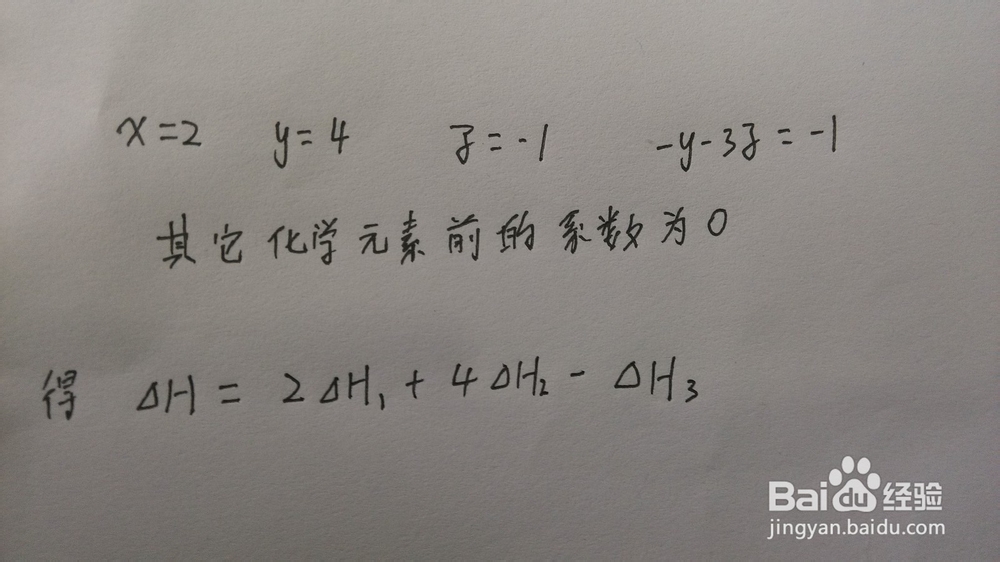 x=2 y=4 z=-1 -y-3z=-1
其它化学元素前的系数为0
得 ΔH = 2ΔH₁ + 4ΔH₂ - ΔH₃
Baidu经验
jingyan.baidu.com